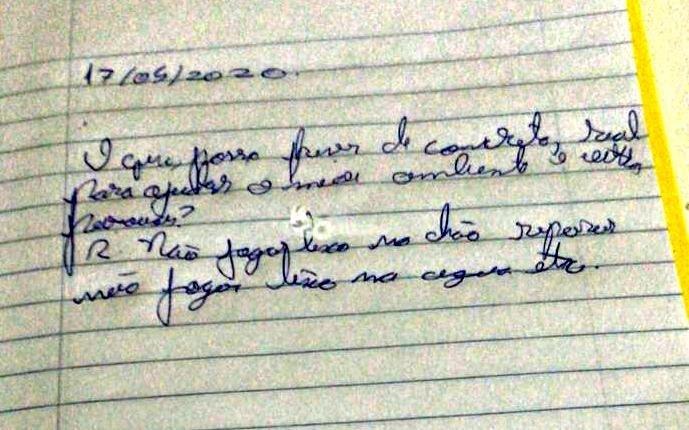 17/05/2020.
O que posso fazer de concreto, real
para ajudar o meio ambiente e outras
pessoas?
R Não jogar lixo no chão reparar
não jogar lixo na agua etc.